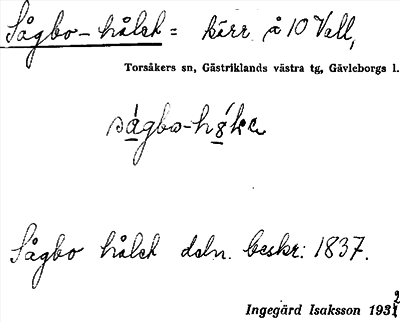 Sågbo-hålet = kärr å 10 Vall,
Torsåkers sn, Gästriklands västra tg, Gävleborgs l.
Sågbo hålet dsbn. beskr: 1837.
Ingegärd Isaksson 1932